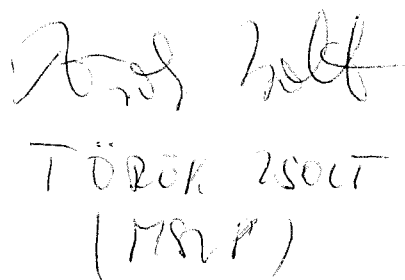 Török Zsolt
TÖRÖK ZSOLT
(MSZP)